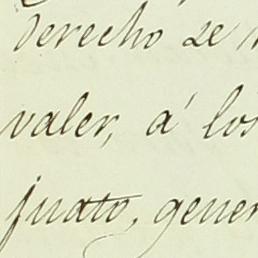 derecho se
valer, á los
justo, gener